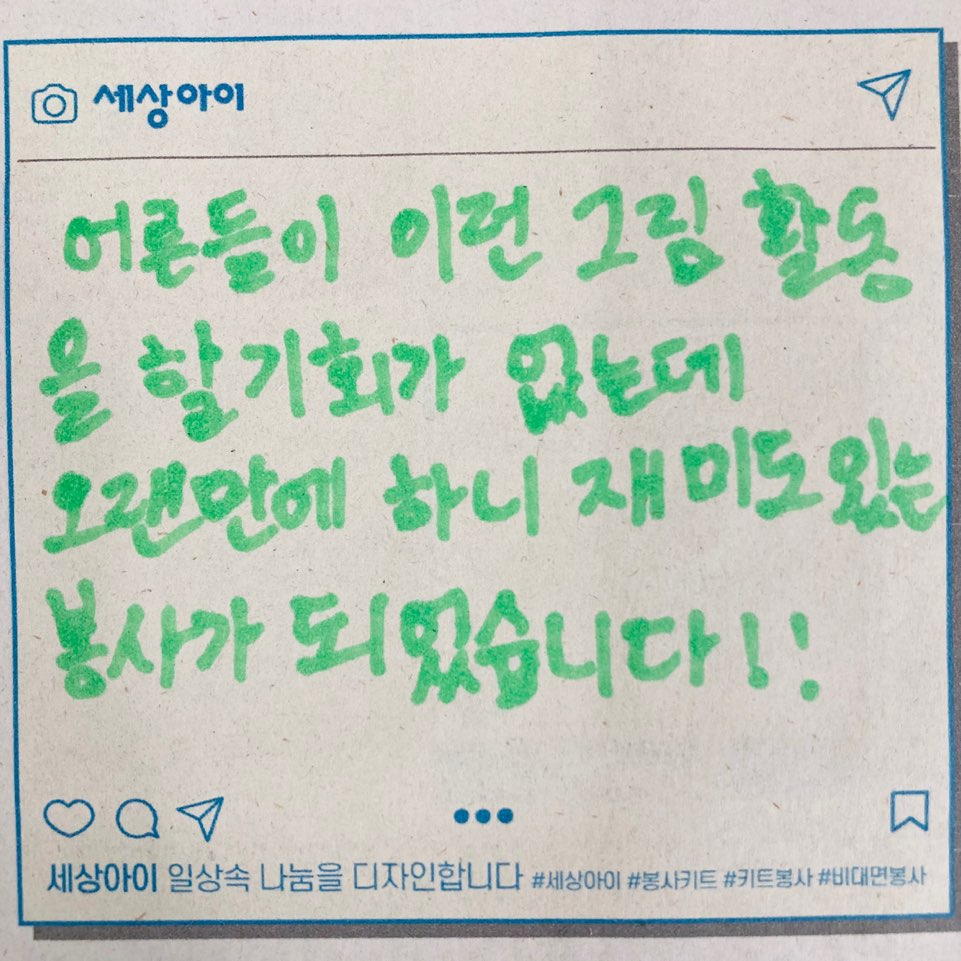 세상아이
어른들이 이런 그림 활동
을 할 기회가 없는데
오랜만에 하니 재미도 있는
봉사가 되었습니다!!
세상아이 일상속 나눔을 디자인합니다 #세상아이 #봉사키트 #키트봉사 #비대면봉사